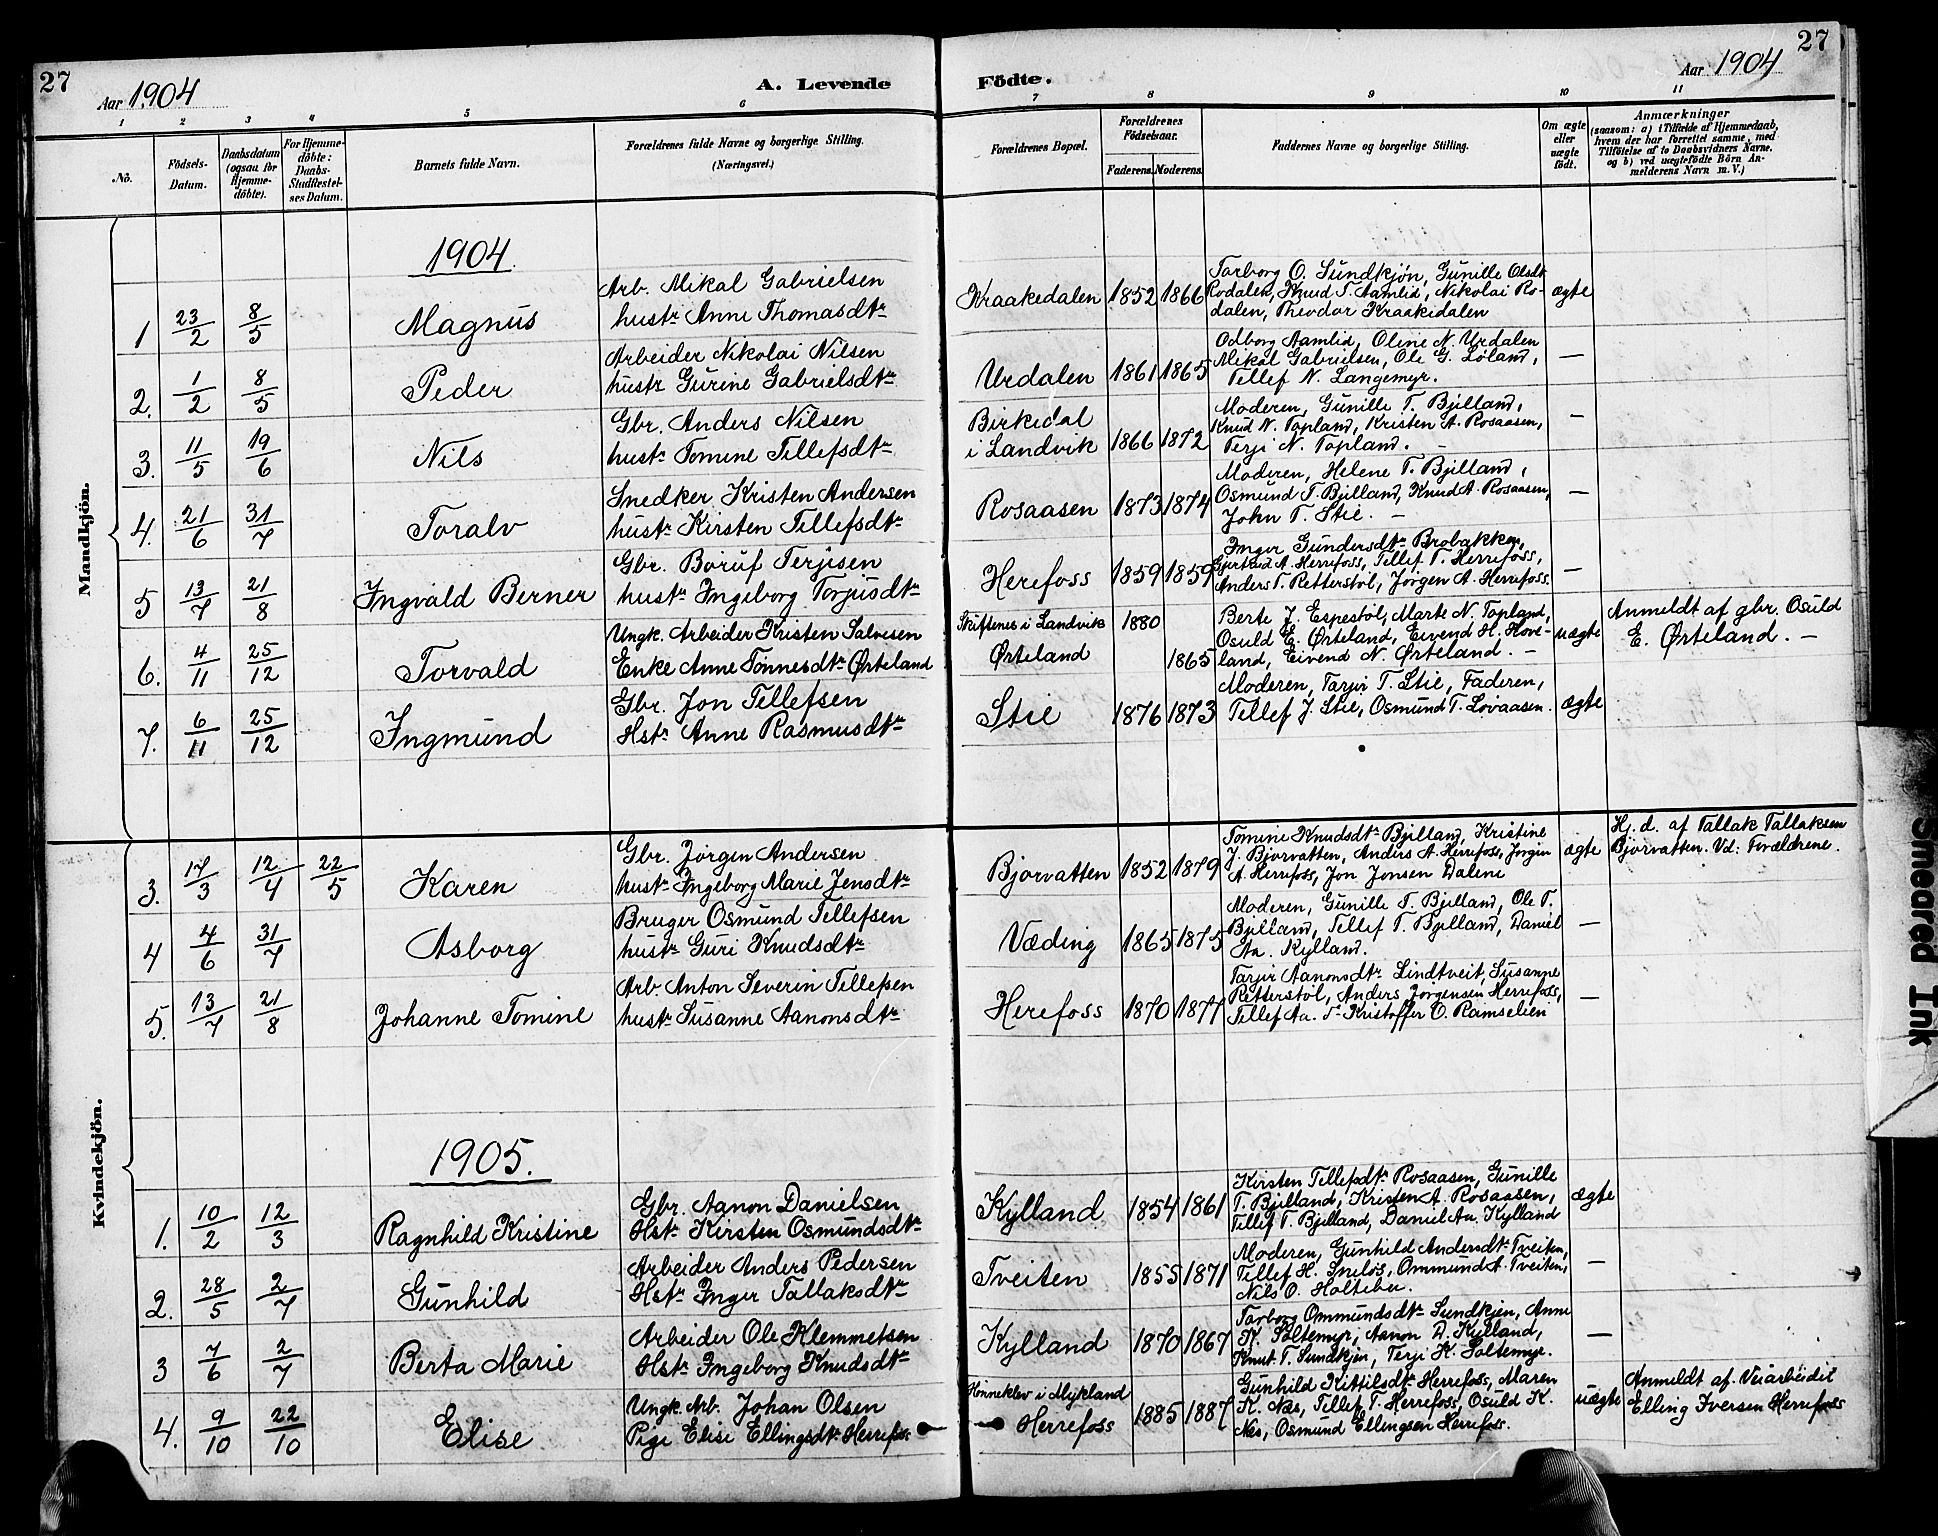 27
Aar 1904
A. Levende Födte.
Aar 1904
27
1 2 3 4 5 6 7 8 9 10 11
No.
Födsels-Datum.
Daabsdatum (ogsaa for Hjemme-döbte).
For Hjemme-döbte: Daabs-Stadfæstel-ses Datum.
Barnets fulde Navn.
Forældrenes fulde Navne og borgerlige Stilling. (Næringsvei.)
Forældrenes Bopæl.
Forældrenes Födselsaar.
Faderens. Moderens.
Faddernes Navne og borgerlige Stilling.
Om ægte eller uægte født.
Anmærkninger
(saasom: a) i Tilfælde af Hjemmedaab,
hvem der har forrettet samme, med
Tilföielse af to Daabsvidners Navne,
og b) ved uægtefödte Börn An-
melderens Navn m. V.)
Mandkjön.
1904.
1 23/2 8/5 Magnus
Arb. Mikal Gabrielsen
hustr Anne Thomasdtr
Kraakedalen 1852 1866
Tarborg O. Sundkjøn, Gunille Olsdtr
Rodalen, Knud T. Aamlid, Nikolai Ro-
dalen, Theodor Kraakedalen
ægte
2. 1/2 8/5 Peder
Arbeider Nikolai Nilsen
hustr Gurine Gabrielsdtr
Urdalen 1861 1865
Odborg Aamlid, Oline N. Urdalen
Mikal Gabrielsen, Ole G. Løland,
Tellef N. Langemyr.
—
3. 11/5 19/6 Nils
Gbr. Anders Nilsen
hustr Tomine Tellefsdtr
Birkedal
i Landvik 1866 1872
Moderen, Gunille T. Bjelland,
Knud N. Topland, Kristen A. Rosaasen,
Terje N. Topland. —
—
4. 21/6 31/7 Toralv
Snedker Kristen Andersen
hustr Kirsten Tellefsdtr
Rosaasen 1873 1874
Moderen, Helene T. Bjelland,
Osmund T. Bjelland, Knud A. Rosaasen,
John T. Stie. —
—
5 13/7 21/8 Ingvald Berner
Gbr. Boruf Terjesen
hustr Ingeborg Torjusdtr
Herefoss 1859 1859
Inger Gundersdtr Brobakken,
Gjertrud A. Herrefoss, Tellef T. Herrefoss,
Anders T. Retterstøl, Jørgen A. Herrefoss.
—
6. 4/11 25/12 Torvald
Ungk. Arbeider Kristen Salvesen
Enke Anne Tønnesdtr Ørteland
Skiftenes i Landvik 1880
Ørteland 1865
Berte J. Espestøl, Marte N. Topland,
Osuld E. Ørteland, Eivend H. Hove-
land, Eivend N. Ørteland. —
uægte
Anmeldt af gbr. Osuld
E. Ørteland. —
7. 6/11 25/12 Ingmund
Gbr. Jon Tellefsen
Hstr Anne Rasmusdtr
Stie 1876 1873
Moderen, Tarjer T. Stie, Faderen,
Tellef J. Stie, Osmund T. Løvaasen.
ægte
Kvindekjön.
3. 17/3 12/4 22/5 Karen
Gbr. Jørgen Andersen
hustr Ingeborg Marie Jensdtr
Bjorvatten 1852 1879
Tomine Knudsdtr Bjelland, Kristine
J. Bjorvatten, Anders A. Herrefoss, Jørgen
A. Herrefoss, Jon Jonsen Dalene
ægte
Hj. d. af Tallak Tallaksen
Bjorvatten. Vd: Forældrene.
4 4/6 31/7 Asborg
Bruger Osmund Tellefsen
hustr Guri Knudsdtr
Væding 1865 1875
Moderen, Gunille T. Bjelland, Ole T.
Bjelland, Tellef T. Bjelland, Daniel
Aa. Kylland.
—
5. 13/7 21/8 Johanne Tomine
Arb. Anton Severin Tellefsen
hustr Susanne Aanonsdtr
Herefoss 1870 1877
Tarjer Aanonsdtr Lindtveit, Susanne
Retterstøl, Anders Jørgensen Herrefoss,
Tellef Aa. Kristoffer O. Ramselien
—
1905.
1. 10/2 12/3 Ragnhild Kristine
Gbr. Aanon Danielsen
Hstr Kirsten Osmundsdtr
Kylland 1854 1861
Kirsten Tellefsdtr Rosaasen, Gunille
T. Bjelland, Kristen A. Rosaasen,
Tellef T. Bjelland, Daniel Aa. Kylland
ægte
2. 28/5 2/7 Gunhild
Arbeider Anders Pedersen
Hstr Inger Tallaksdtr
Tveiten 1855 1871
Moderen, Gunhild Andersdtr Tveiten,
Tellef H. Sneløs, Ommund A. Tveiten,
Nils O. Holteber
—
3 7/6 2/7 Berta Marie
Arbeider Ole Klemmetsen
Hstr Ingeborg Knudsdtr
Kylland 1870 1867
Tarborg Ommundsdtr Sundkjen, Anne
K. Soltemyr, Aanon D. Kylland,
Knut T. Sundkjen, Terje K. Soltemyr.
—
4. 9/10 22/10 Elise
Ungk. Arb. Johan Olsen
Pige Elise Ellingsdtr Herrefoss
Honneklev i Mykland
Herrefoss 1885 1887
Gunhild Kittilsdtr Herrefoss, Maren
K. Næs, Tellef T. Herrefoss, Osuld K.
Næs, Osmund Ellingsen Herrefoss.
uægte
Anmeldt af Veiarbeider
Elling Iversen Herrefoss
Smeared Ink